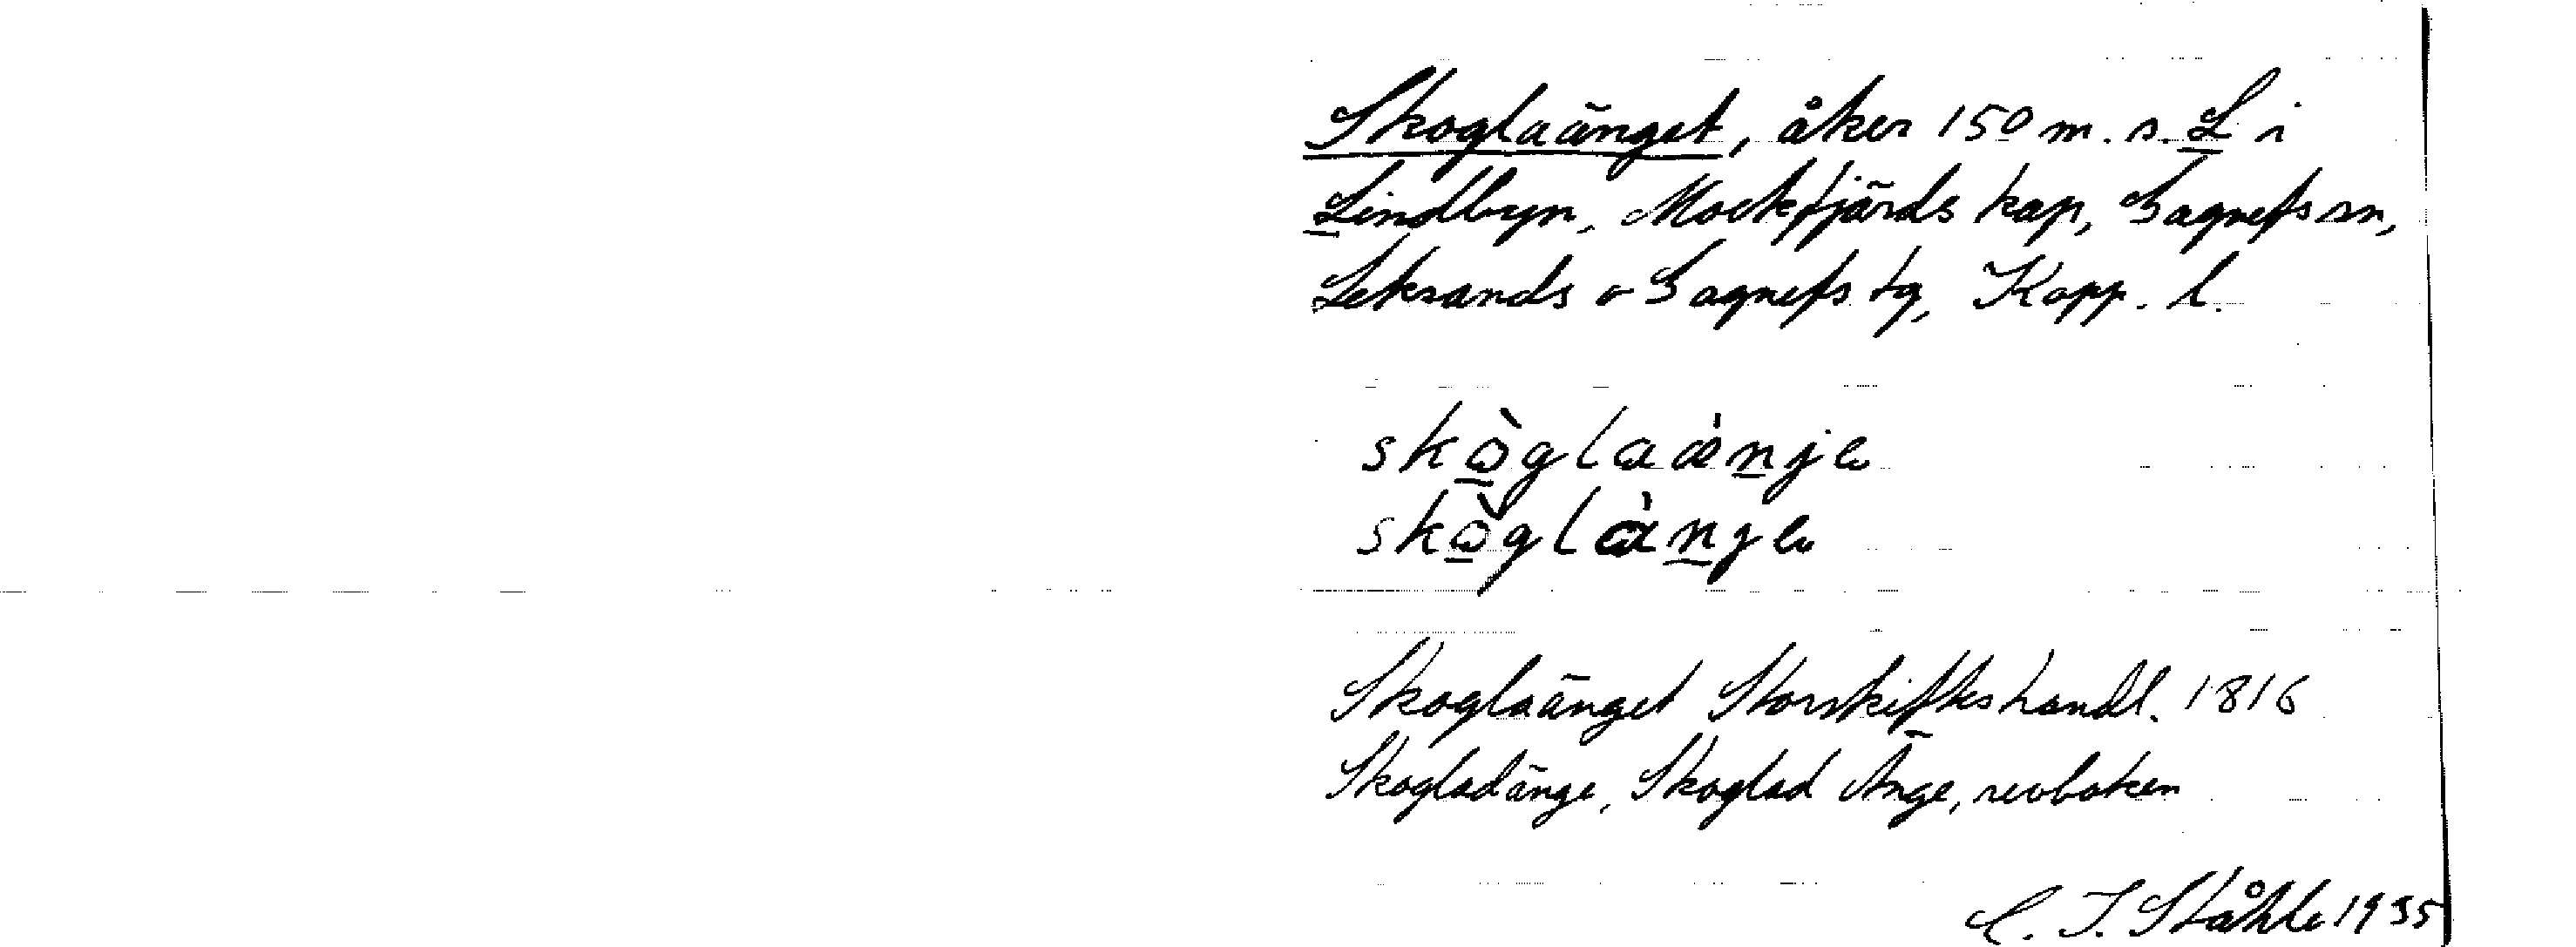 Skoglaänget, åker 150 m. s. L i
Lindbyn, Mockfjärds kap, Gagnefs sn,
Leksands o Gagnefs tg, Kopp. l.
Skoglaänget Storskifteshandl. 1816
Skogladänge, Skoglad Änge, revboken
C. I. Ståhle 1935